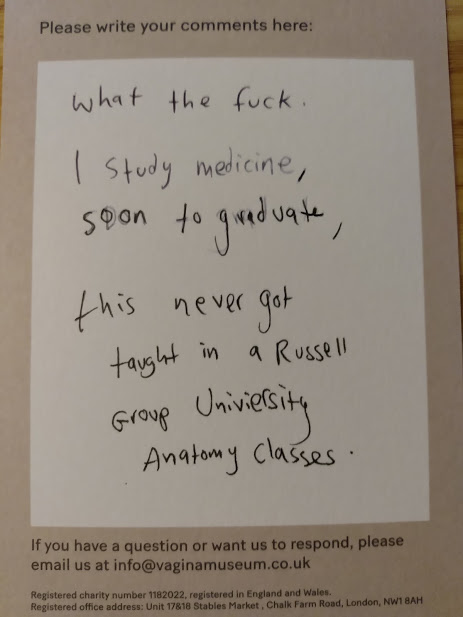 Please write your comments here:
what the fuck.
I study medicine,
soon to graduate,
this never got
taught in a Russell
Group Univiersity
Anatomy Classes.
If you have a question or want us to respond, please
email us at info@vaginamuseum.co.uk
Registered charity number 1182022, registered in England and Wales.
Registered office address: Unit 17&18 Stables Market , Chalk Farm Road, London, NW1 8AH